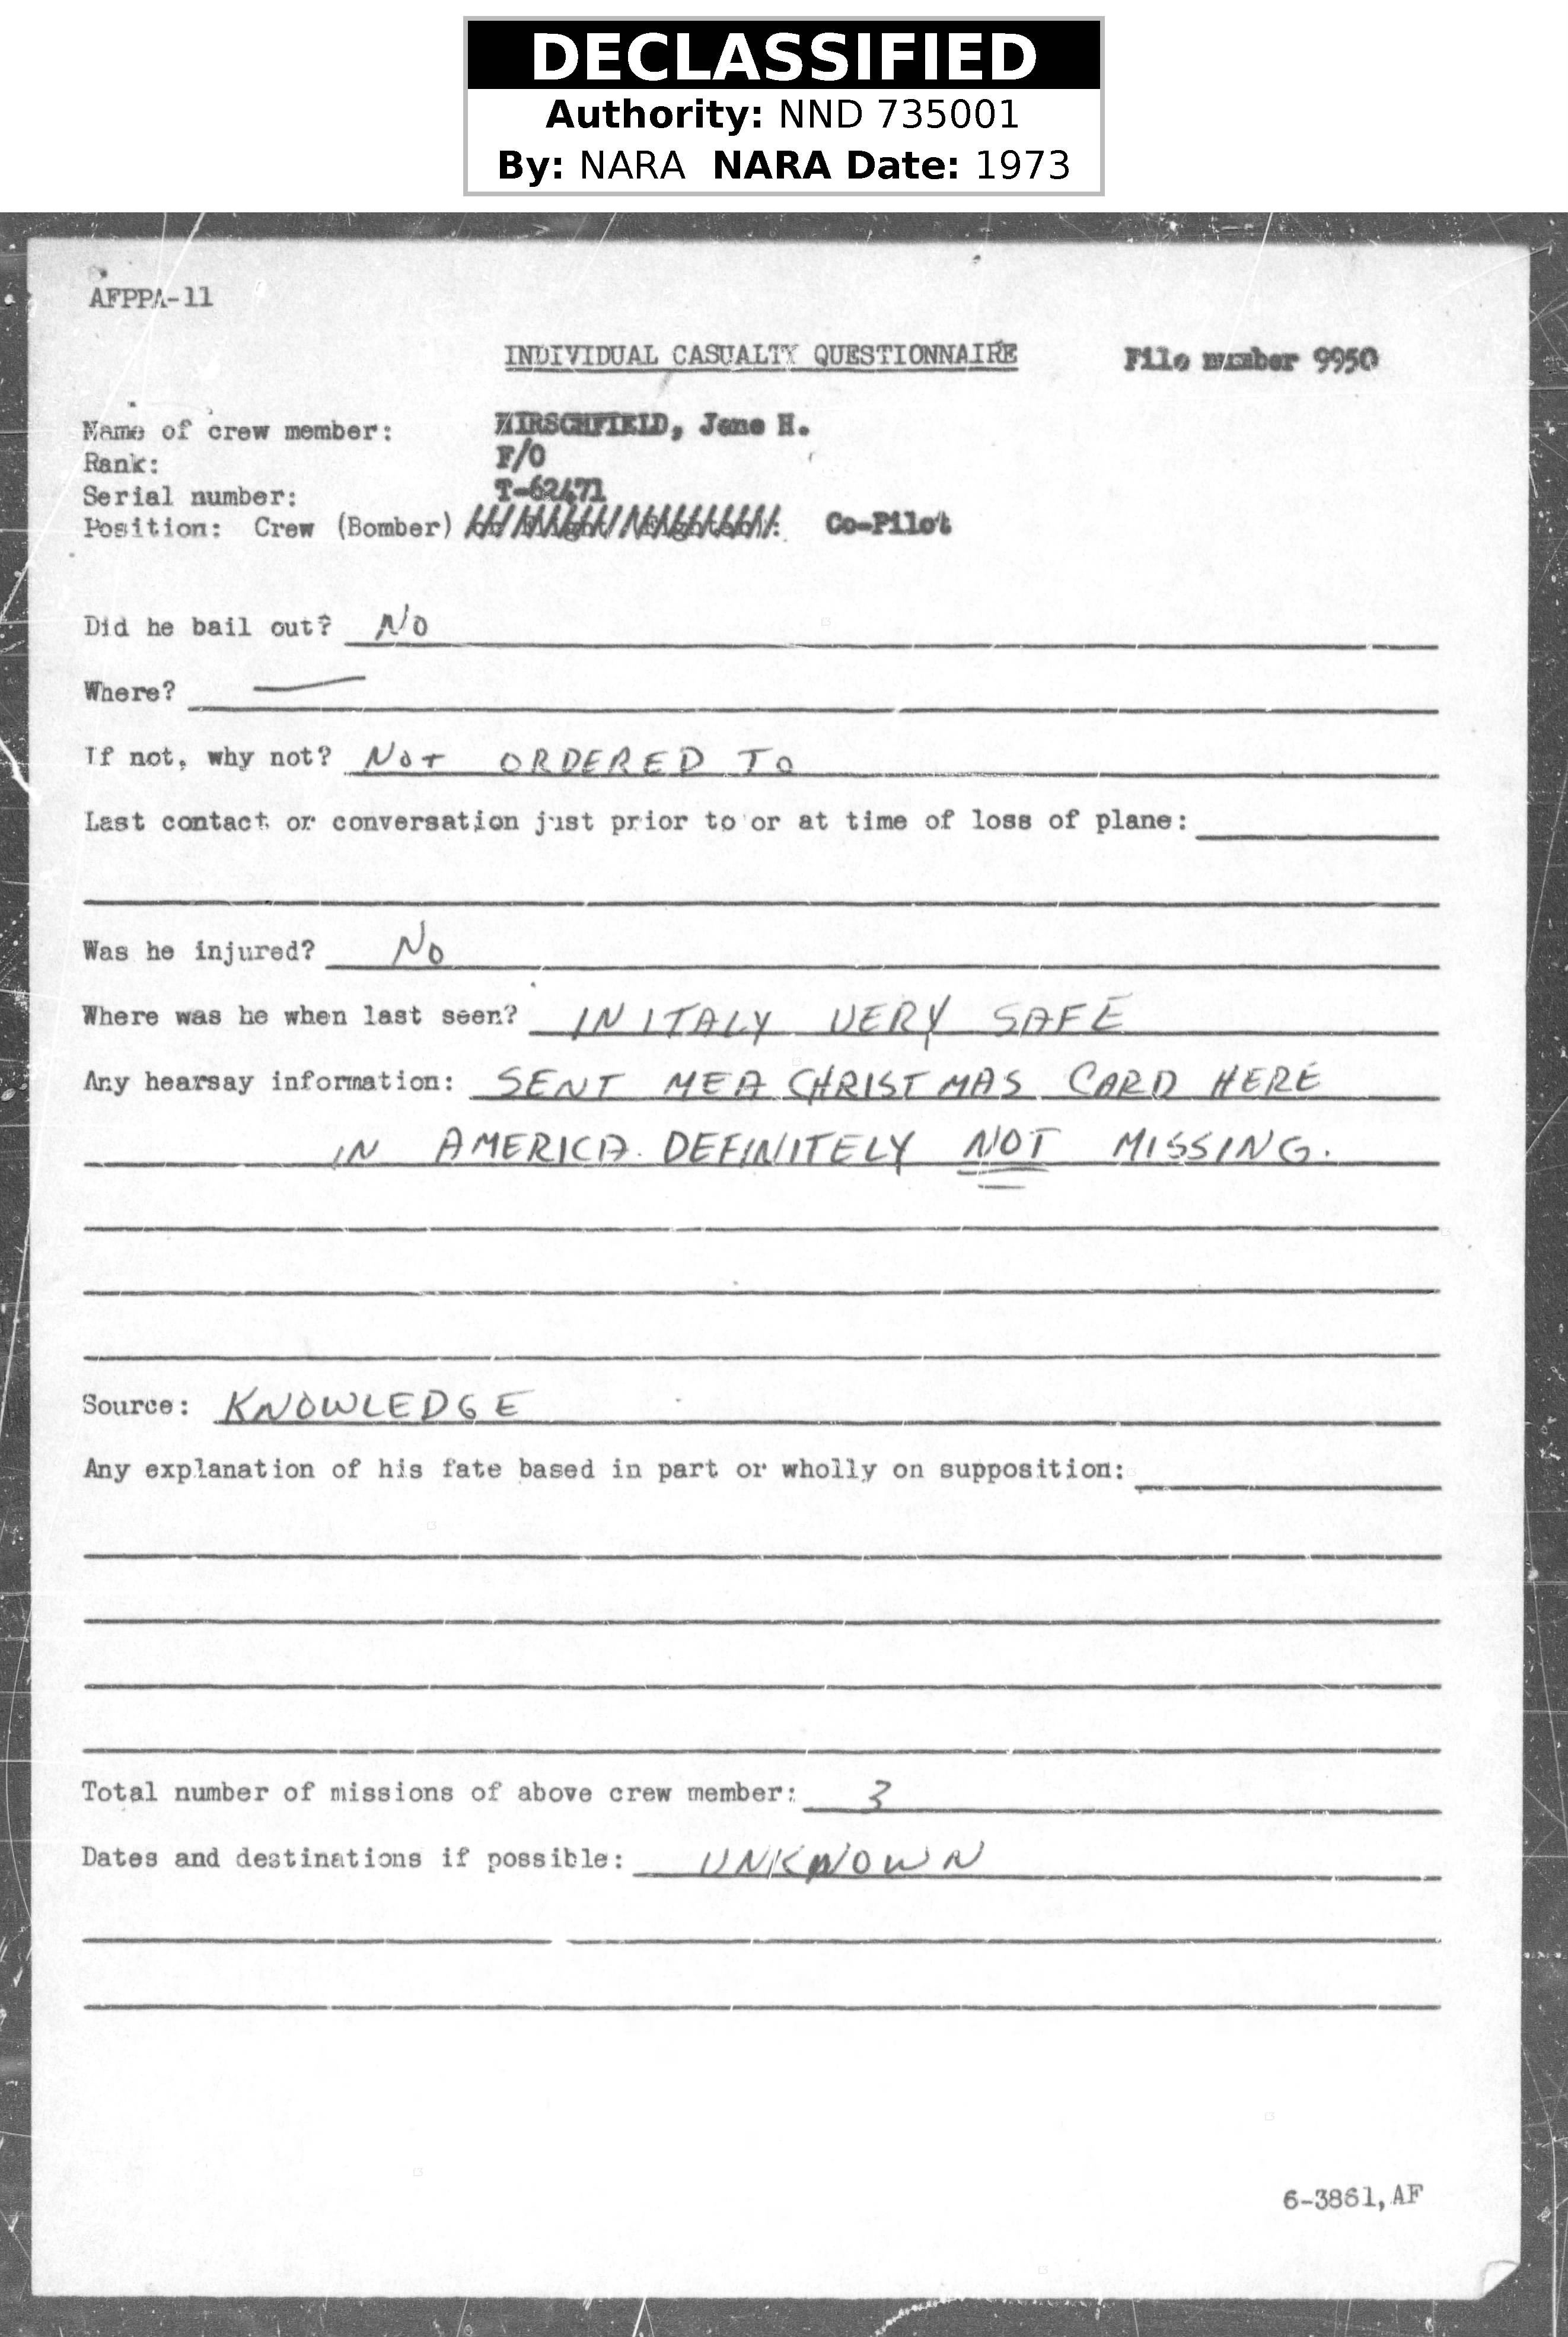 DECLASSIFIED
Authority: NND 735001
By: NARA NARA Date: 1973
AFPPA-11
INDIVIDUAL CASUALTY QUESTIONNAIRE File number 9950
Name of crew member: HIRSCHFIELD, Jene H.
Rank: F/O
Serial number: T-62471
Position: Crew (Bomber) Co-Pilot
Did he bail out? No
Where? —
If not, why not? NOT ORDERED TO
Last contact or conversation just prior to or at time of loss of plane:
Was he injured? No
Where was he when last seen? IN ITALY VERY SAFE
Any hearsay information: SENT ME A CHRISTMAS CARD HERE
IN AMERICA. DEFINITELY NOT MISSING.
Source: KNOWLEDGE
Any explanation of his fate based in part or wholly on supposition:
Total number of missions of above crew member: 3
Dates and destinations if possible: UNKNOWN
6-3861, AF